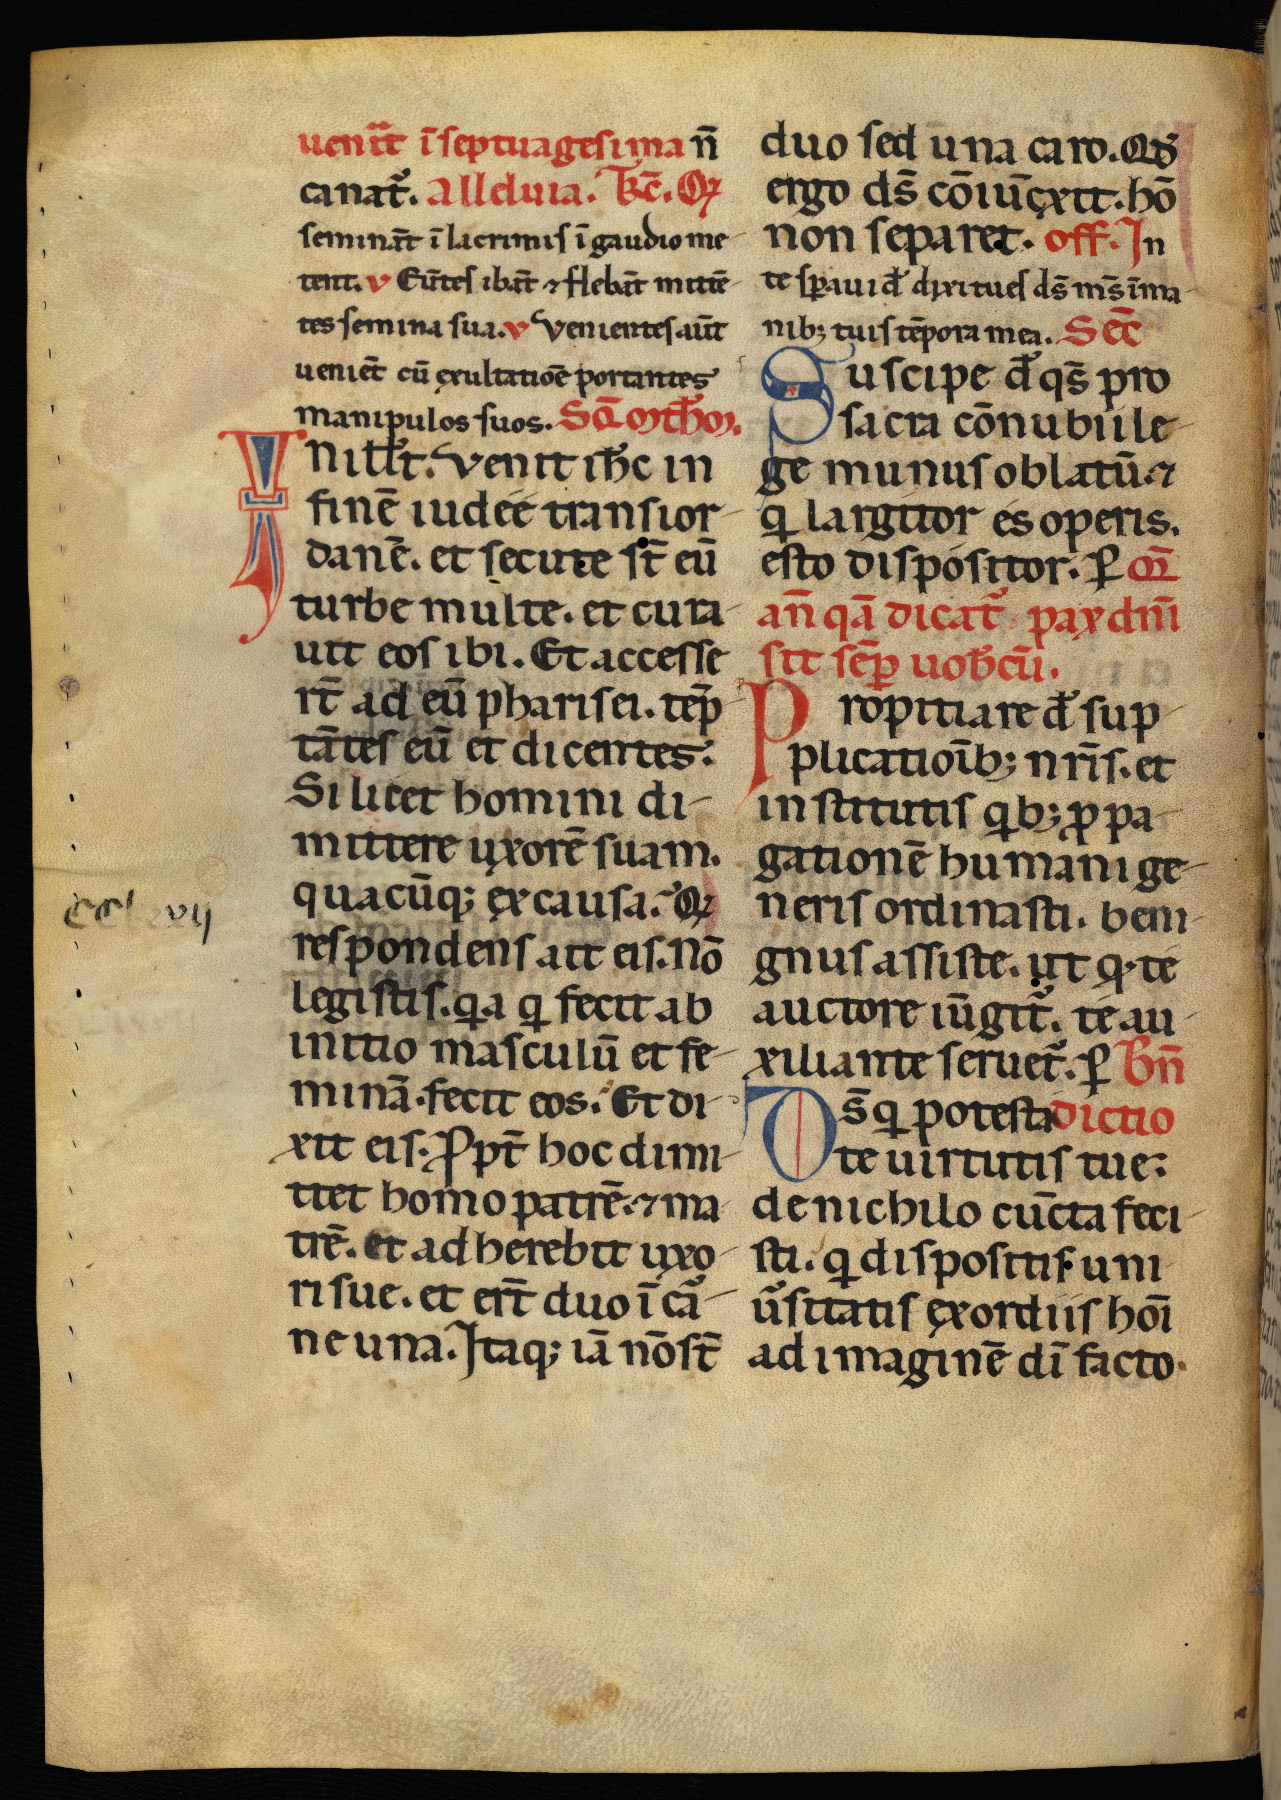 uenīāt ī septuagesima n̄
canat᷑. Alleluia. T̄c̄. Qꝝ
semināt ī lacrimis ī gaudio me
tent. v Eūtes ibāt ⁊ flebāt mittē
tes semina sua. v Venientes aūt
ueniēt cū exultatiōe portantes
manipulos suos.
N ill᷑t. Venit ih̄c in
finē iudeē transior
danē. et secute st̄ eū
turbe multe. et cura
uit eos ibi. Et accesse
rt̄ ad eū pharisei. tēp
tātes eū et dicentes.
Si licet homini di
mittere uxorē suam.
quacūq; ex causa. Qꝝ
respondens ait eis. Nō
legistis. qa q fecit ab
initio masculū et fe
minā. fecit eos. Et di
xit eis. Ppt̄ hoc dimi
ttet homo patrē. ⁊ ma
trē. et adherebit uxo
ri sue. et ert̄ duo ī cā
ne una. Itaq; iā nō st̄
CCLxvij
duo sed una caro. Qd̄
ergo ds̄ cōiūxit. hō
non separet. off. In
te sꝑaui d̄ dixi tu es ds̄ ms̄ ī ma
nib; tuis tēpora mea. Sēc̄
Suscipe d̄ qs̄ pro
sacra cōnubii le
ge munus oblatū. ⁊
q largitor es operis.
esto dispositor. ꝑ Or̄
an̄ qā dicat᷑ pax dn̄i
sit sēꝑ uob̄cū.
Propitiare d̄ sup
plicatioīb; nr̄is. et
institutis qb; ꝓpa
gationē humani ge
neris ordinasti. beni
gnus assiste. ut q. te
auctore iūgit᷑. te au
xiliante seruet᷑. ꝑ Bn̄
Ds̄ q potesta dictio
te uirtutis tue.
de nichilo cūcta feci
sti. q dispositis uni
u᷑sitatis exordiis hoī
ad imaginē dī facto